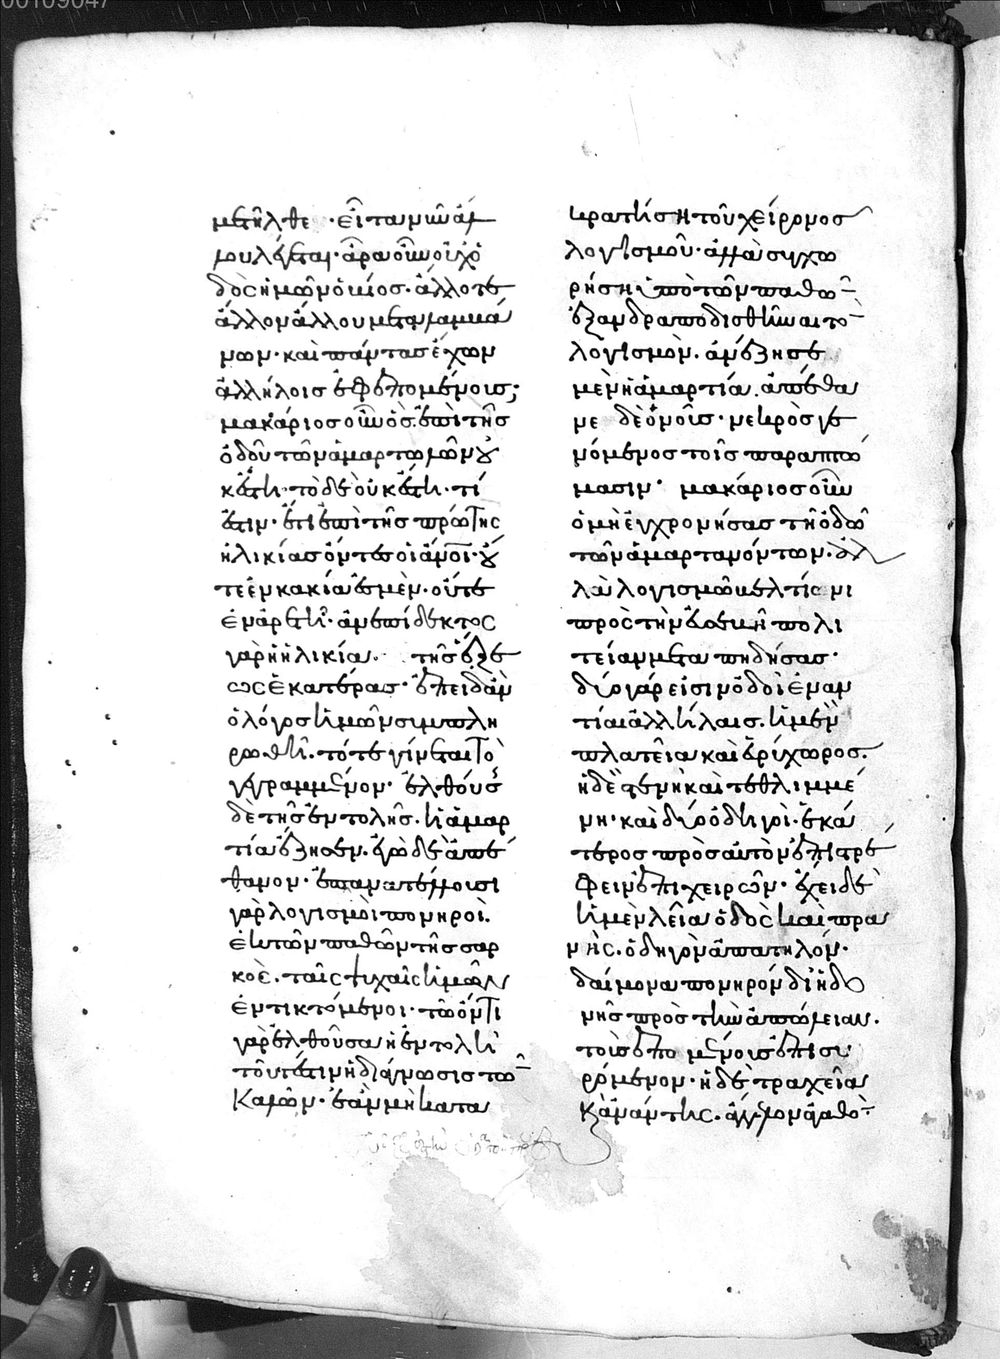 00109047
μετῆλθε · εἶτα μῶν ἀμ
μου λέγεται· ἆρα οὖν οὐχ ὁ
δὸς ἡμῶν ὁ βίος· ἄλλοτε
ἄλλον ἄλλου μεταλαμβά
νων· καὶ πάντας ἔχων
ἀλλήλοις ἐφεπομένους;
μακάριος οὖν ὃς ἐπὶ τῆς
ὁδοῦ τῶν ἁμαρτωλῶν οὐ
κ ἔστη· τὸ δὲ οὐκ ἔστη· τί
ἐστιν· ἔτι ἐπὶ τῆς πρώτης
ἡλικίας ὄντες οἱ ἄνοι· οὔ
τε ἐν κακία ἐσμὲν· οὔτε
ἐν ἀρετῆ· ἀνεπίδεκτος
γὰρ ἡ ἡλικία. τῆς ἕξε
ως ἑκατέρας· ἐπειδὰν
ὁ λόγος ἡμῶν συμπλη
ρωθῆ· τότε γίνεται τὸ
γεγραμμένον· ἐλθούσ
δὲ τῆς ἐντολῆς. ἡ ἁμαρ
τία ἔζησεν. ἐγὼ δὲ ἀπέ
θανον· ἐπανατέλλουσι
γὰρ λογισμοὶ πονηροὶ.
ἐκ τῶν παθῶν τῆς σαρ
κὸς. ταῖς ψυχαῖς ἡμῶν
ἐντικτόμενοι· τῶ ὄντι
γὰρ ἐλθοῦσα ἡ ἐντολὴ
τοῦτέστιν ἡ διάγνωσις τῶ
καλῶν· ἐὰν μὴ κατα
κρατήση τοῦ χείρονος
λογισμοῦ· ἀλλὰ συγχω
ρήση ὑπὸ τῶν παθῶ
ἐξανδραποδισθῆναι τὸ
λογισμὸν. ἀνέζησε
μὲν ἡ ἁμαρτία. ἀπέθα
νε δὲ ὁ νοῦς· νεκρὸς γε
νόμενος τοῖς παραπτώ
μασιν· μακάριος οὖν
ὁ μὴ ἐγχρονήσας τῆ ὁδῶ
τῶν ἁμαρτανόντων. ἀλ
λὰ λογισμῶ βελτίονι
πρὸς τὴν εὐσεβῆ πολι
τείαν μετα πηδήσας·
δύο γάρ εἰσιν ὁδοὶ ἐναν
τίαι ἀλλήλαις. ἡ μὲν
πλατεῖα καὶ εὐρύχωρος.
ἡ δὲ στενὴ καὶ τεθλιμμέ
νη· καὶ δύο ὁδηγοὶ· ἑκά
τερος πρὸς αὐτὸν ἐπιστρέ
φειν ἐπιχειρῶν· ἔχει δὲ
ἡ μὲν λεῖα ὁδὸς καὶ πρα
νὴς. ὁδηγὸν ἀπατηλόν·
δαίμονα πονηρόν δι ἡδο
νῆς πρὸς τὴν ἀπώλειαν.
τοὺς ἑπο μένους ἐπισυ
ρόμενον· ἡ δὲ τραχεῖα
κἀνάντης. ἄγγελον ἀγαθὸ